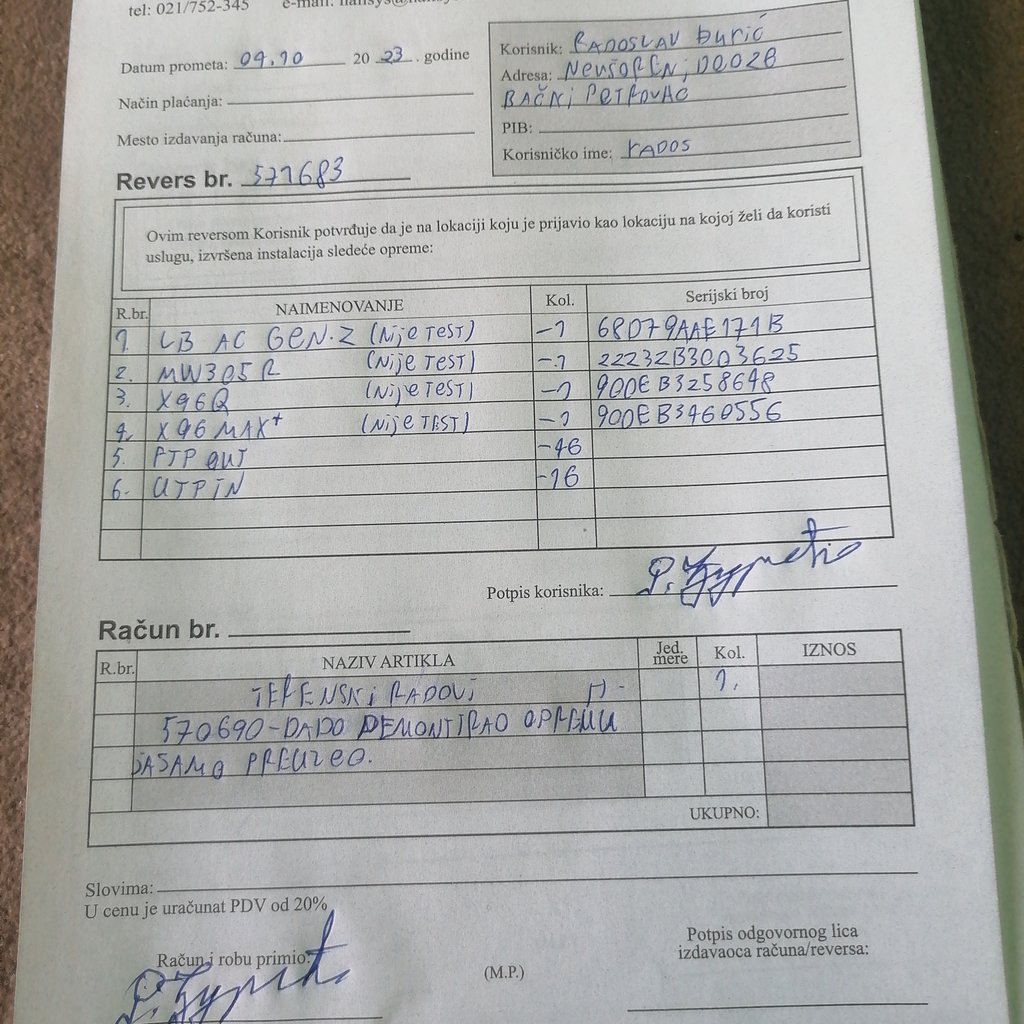 tel: 021/752-345 e-mail:
Datum prometa: 09.10 20 23 . godine
Način plaćanja:
Mesto izdavanja računa:
Korisnik: RADOSLAV Đurić
Adresa:
BAČKI PETROVAC
PIB:
Korisničko ime: rADOS
Revers br. 571683
Ovim reversom Korisnik potvrđuje da je na lokaciji koju je prijavio kao lokaciju na kojoj želi da koristi
uslugu, izvršena instalacija sledeće opreme:
R.br. NAIMENOVANJE Kol. Serijski broj
1. LB AC GEN·2 (Nije TEST) -1 68D79AAE171B
2. MW305R (Nije TEST) -1 22232B3003625
3. X96Q (Nije TEST) -1 900EB3258648
4. X96 MAX+ (Nije TEST) -1 900EB3460556
5. FTP OUT -46
6. UTP IN -16
Potpis korisnika:
Račun br.
R.br. NAZIV ARTIKLA Jed. mere Kol. IZNOS
TERENSKi RADOVi H- 1.
570690-DADO DEMONTIRAO OPREMU
JA SAMO PREUZEO.
UKUPNO:
Slovima:
U cenu je uračunat PDV od 20%
Račun i robu primio:
(M.P.)
Potpis odgovornog lica
izdavaoca računa/reversa: